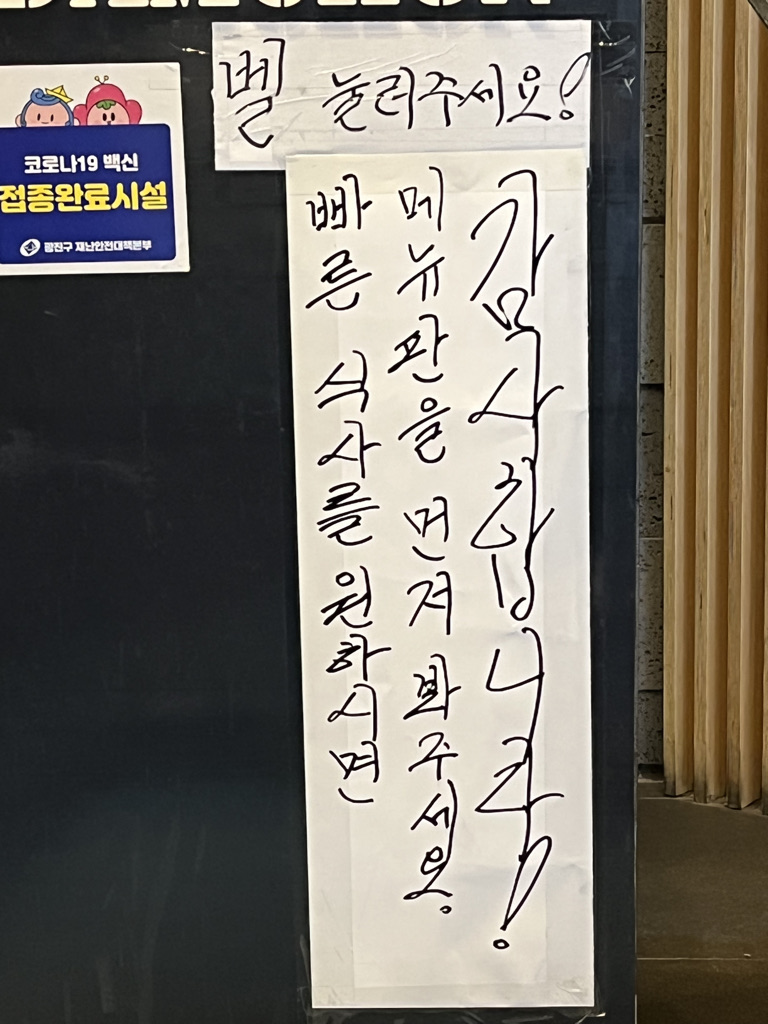 벨 눌러주세요!
빠른 식사를 원하시면
메뉴판을 먼저 봐주세요.
감사합니다!
코로나19 백신
접종완료시설
광진구 재난안전대책본부